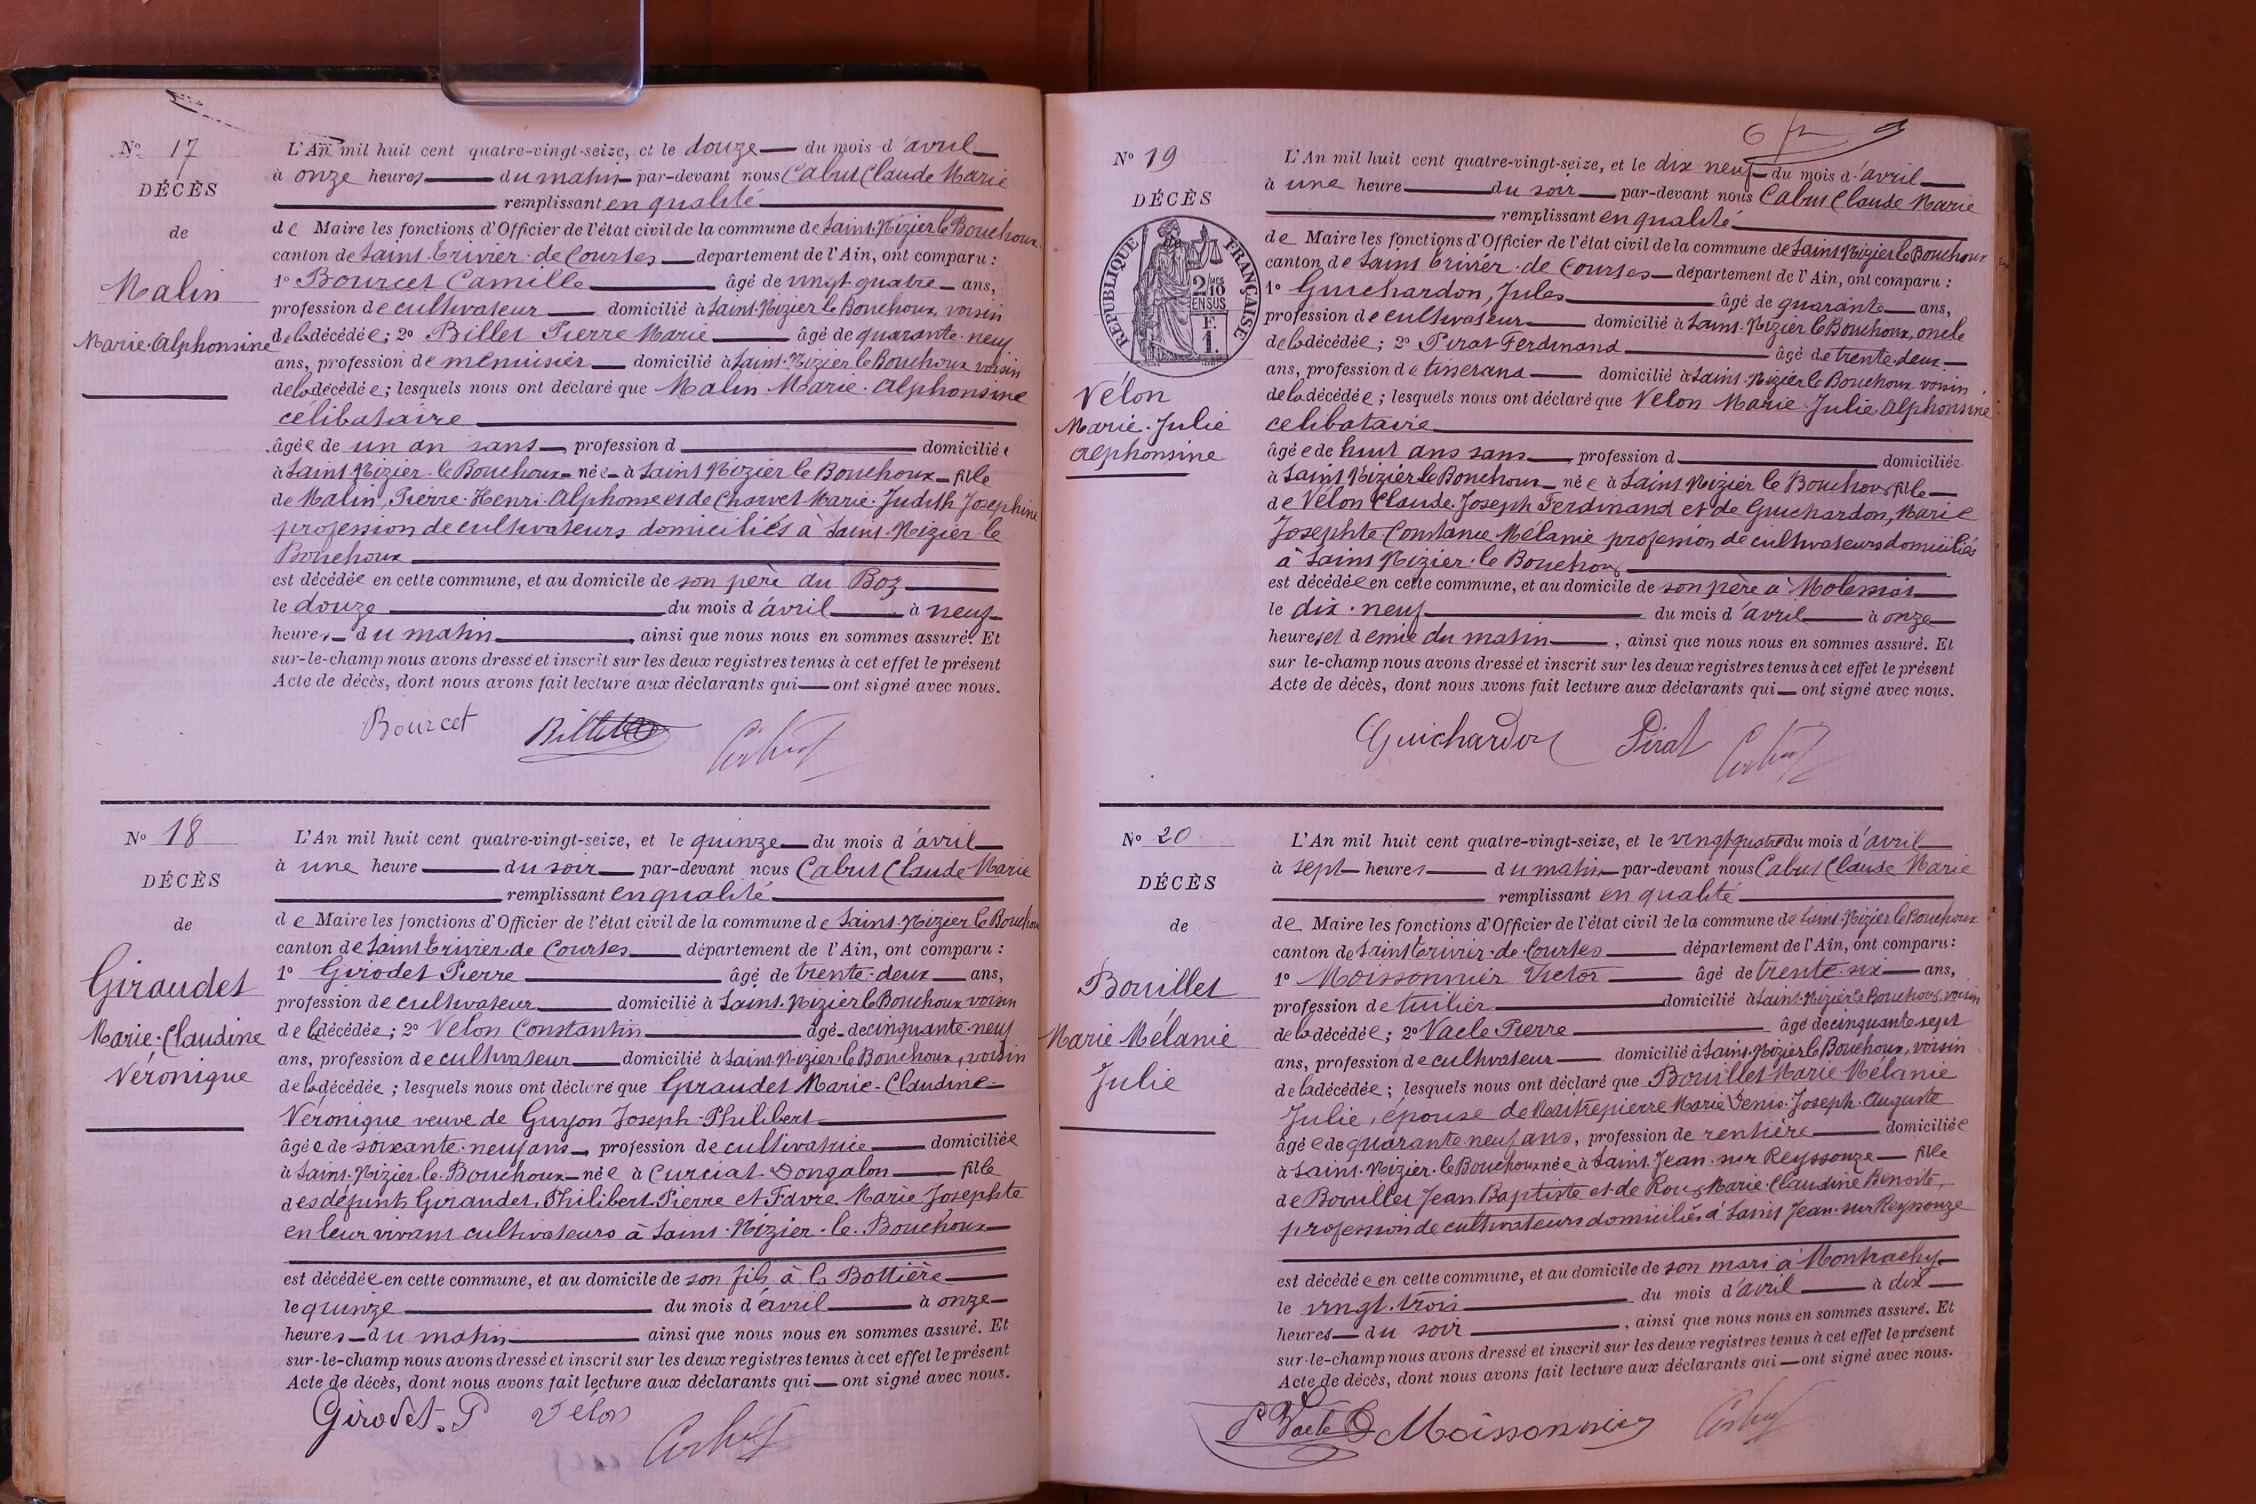 Nº 17
DÉCÈS
de
Malin
Marie-Alphonsine
L'An mil huit cent quatre-vingt-seize, et le douze du mois d'avril
à onze heures du matin par-devant nous Cabut Claude Marie
remplissant en qualité
de Maire les fonctions d'Officier de l'état civil de la commune de Saint-Nizier le Bouchoux
canton de Saint-Trivier-de-Courtes département de l'Ain, ont comparu :
1º Bourcet Camille âgé de vingt quatre ans,
profession de cultivateur domicilié à Saint-Nizier le Bouchoux voisin
de la décédée ; 2º Billet Pierre Marie âgé de quarante-neuf
ans, profession de menuisier domicilié à Saint-Nizier le Bouchoux voisin
de la décédée ; lesquels nous ont déclaré que Malin Marie-Alphonsine
célibataire
âgée de un an sans profession d domiciliée
à Saint-Nizier-le Bouchoux née à Saint Nizier le Bouchoux fille
de Malin, Pierre-Henri-Alphonse et de Charvet Marie-Judith Josephine
profession de cultivateurs domiciliés à Saint-Nizier le
Bouchoux
est décédée en cette commune, et au domicile de son père au Boz
le douze du mois d'avril à neuf
heures du matin ainsi que nous nous en sommes assuré. Et
sur-le-champ nous avons dressé et inscrit sur les deux registres tenus à cet effet le présent
Acte de décès, dont nous avons fait lecture aux déclarants qui ont signé avec nous.
Bourcet Billet Cabut
Nº 18
DÉCÈS
de
Giraudet
Marie-Claudine
Véronique
L'An mil huit cent quatre-vingt-seize, et le quinze du mois d'avril
à une heure du soir par-devant nous Cabut Claude-Marie
remplissant en qualité
de Maire les fonctions d'Officier de l'état civil de la commune de Saint-Nizier le Bouchoux
canton de Saint Trivier-de Courtes département de l'Ain, ont comparu :
1º Girodet Pierre âgé de trente-deux ans,
profession de cultivateur domicilié à Saint-Nizier le Bouchoux voisin
de la décédée ; 2º Velon Constantin âgé de cinquante-neuf
ans, profession de cultivateur domicilié à Saint-Nizier-le Bouchoux, voisin
de la décédée ; lesquels nous ont déclaré que Giraudet Marie-Claudine-
Véronique veuve de Guyon Joseph-Philibert
âgée de soixante-neuf ans, profession de cultivatrice domiciliée
à Saint-Nizier-le-Bouchoux née à Curciat-Dongalon fille
des défunts Giraudet, Philibert-Pierre et Favre Marie Josephte
en leur vivant cultivateurs à Saint-Nizier-le-Bouchoux
est décédée en cette commune, et au domicile de son fils à la Bottière
le quinze du mois d'avril à onze
heures du matin ainsi que nous nous en sommes assuré. Et
sur-le-champ nous avons dressé et inscrit sur les deux registres tenus à cet effet le présent
Acte de décès, dont nous avons fait lecture aux déclarants qui ont signé avec nous.
Girodet. P Vélon Cabut
6
Nº 19
DÉCÈS
RÉPUBLIQUE FRANÇAISE
2/10 EN SUS
F. 1.
Vélon
Marie-Julie
Alphonsine
L'An mil huit cent quatre-vingt-seize, et le dix neuf du mois d'avril
à une heure du soir par-devant nous Cabut Claude Marie
remplissant en qualité
de Maire les fonctions d'Officier de l'état civil de la commune de Saint-Nizier le Bouchoux
canton de Saint Trivier-de Courtes département de l'Ain, ont comparu :
1º Guichardon, Jules âgé de quarante ans,
profession de cultivateur domicilié à Saint-Nizier le Bouchoux, oncle
de la décédée ; 2º Pirat Ferdinand âgé de trente-deux
ans, profession de tisserand domicilié à Saint-Nizier le Bouchoux voisin
de la décédée ; lesquels nous ont déclaré que Vélon Marie-Julie Alphonsine
célibataire
âgée de huit ans sans profession d domiciliée
à Saint Nizier le Bouchoux née à Saint Nizier le Bouchoux fille
de Vélon Claude-Joseph Ferdinand et de Guichardon, Marie
Josephte-Constance Mélanie profession de cultivateurs domiciliés
à Saint Nizier-le Bouchoux
est décédée en cette commune, et au domicile de son père à
le dix-neuf du mois d'avril à onze
heures et demie du matin, ainsi que nous nous en sommes assuré. Et
sur-le-champ nous avons dressé et inscrit sur les deux registres tenus à cet effet le présent
Acte de décès, dont nous avons fait lecture aux déclarants qui ont signé avec nous.
Guichardon Pirat Cabut
Nº 20
DÉCÈS
de
Bouillet
Marie Mélanie
Julie
L'An mil huit cent quatre-vingt-seize, et le vingt quatre du mois d'avril
à sept heures du matin par-devant nous Cabut Claude Marie
remplissant en qualité
de Maire les fonctions d'Officier de l'état civil de la commune de Saint-Nizier le Bouchoux
canton de Saint Trivier-de-Courtes département de l'Ain, ont comparu :
1º Moissonnier Victor âgé de trente-six ans,
profession de tuilier domicilié à Saint-Nizier le Bouchoux, voisin
de la décédée ; 2º Vacle Pierre âgé de cinquante sept
ans, profession de cultivateur domicilié à Saint-Nizier le Bouchoux, voisin
de la décédée ; lesquels nous ont déclaré que Bouillet Marie Mélanie
Julie, épouse de Maitrepierre Marie Denis-Joseph-Auguste
âgée de quarante neuf ans, profession de rentière domiciliée
à Saint-Nizier-le Bouchoux née à Saint Jean-sur Reyssouze fille
de Bouillet Jean Baptiste et de Roux Marie-Claudine Benoite,
profession de cultivateurs domiciliés à Saint Jean-sur Reyssouze
est décédée en cette commune, et au domicile de son mari à Montrachy
le vingt-trois du mois d'avril à dix
heures du soir, ainsi que nous nous en sommes assuré. Et
sur-le-champ nous avons dressé et inscrit sur les deux registres tenus à cet effet le présent
Acte de décès, dont nous avons fait lecture aux déclarants qui ont signé avec nous.
P Vacle Moissonnier Cabut